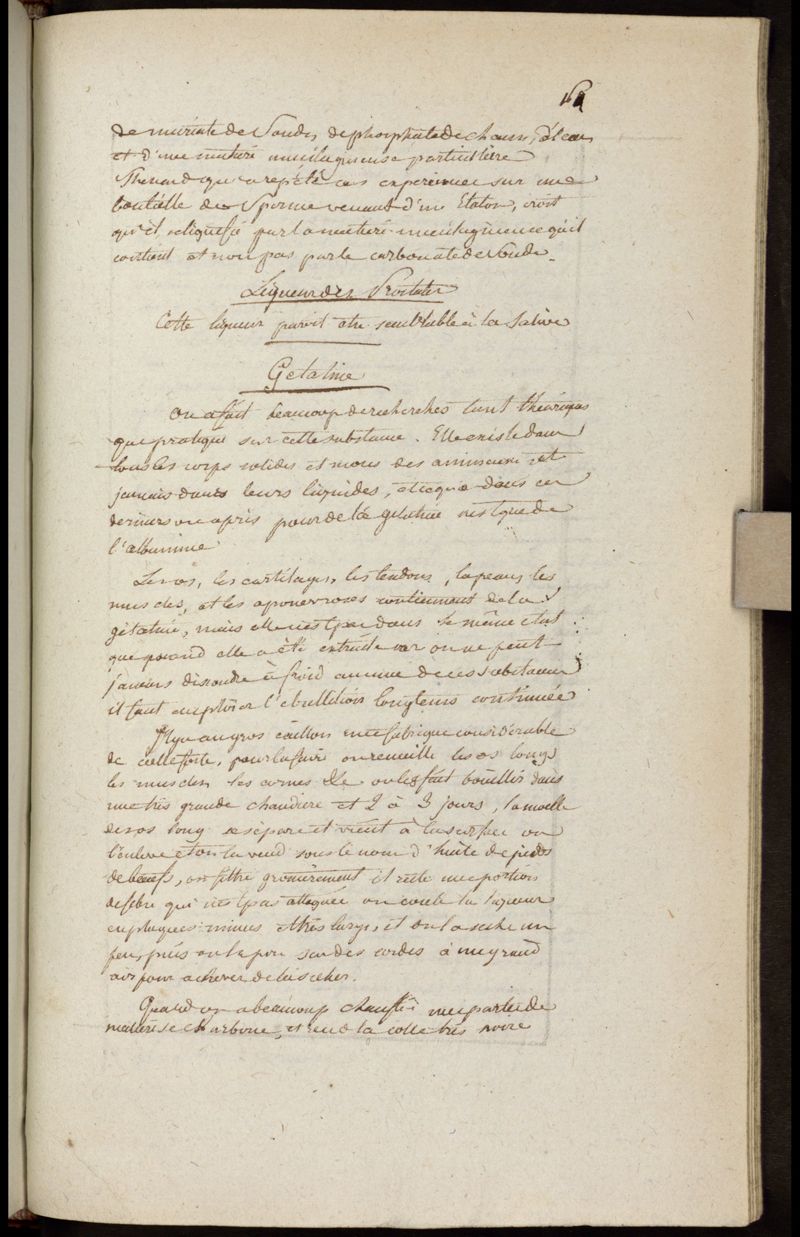 de muriate de soude, de phosphate de chaux, d'eau
et d'une matiere mucilagineuse particuliere
Thenard qui a repété ces experiences sur une
bouteille de sperme venant d'un Etalon, croit
qu'il se liquefie par la matiere mucilagineuse qu'il
contient et non pas par le carbonate de soude.
Liqueur des Prostates
Cette liqueur paroit etre semblable à la salive
Gelatine
On a fait beaucoup de recherches tant théoriques
que pratiques sur cette substance. Elle existe dans
tous les corps solides et mous des animaux et
jamais dans leurs liquides, et ce que dans ces
derniers on a pris pour de la gelatine n'est que de
l'albumine
Les os, les cartilages, les tendons, la peau, les
muscles, et les aponevroses contiennent de la
gélatine, mais elle n'est pas dans le même etat
que quand elle a été extraite car on ne peut
jamais dissoudre à froid aucune de ces substances
il faut employer l'ebullition longtems continuée
Il y a au gros caillou une fabrique considérable
de colle forte, pour la faire on recueille les os longs
les muscles, les cornes &c on les fait bouillir dans
une très grande chaudiere et 2 à 3 jours, la moelle
des os long se sépare et vient à la surface on
l'enleve et on la vend sous le nom d'huile de pieds
de bœufs, on filtre grossièrement il reste une portion
de fibre qui n'est pas attaquée on coule la liqueur
en plaques minces et très larges, et on la seche un
peu, puis on la pose sur des cordes à un grand
air pour achever de la sécher.
Quand on a beaucoup chauffé une partie de
matiere se charbonne, et rend la colle très noire